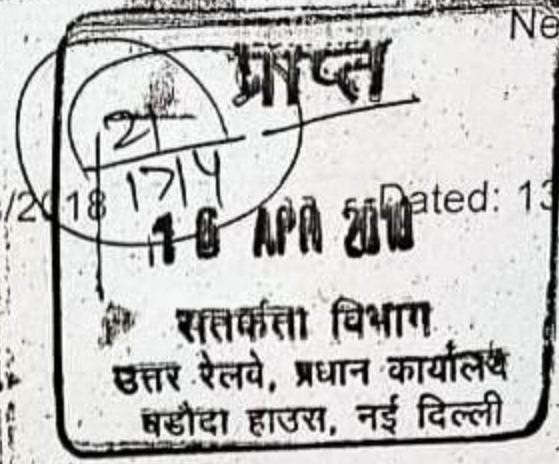 Ne
प्राप्त
21
17/4
/2018
Dated: 13
16 APR 2018
सतर्कता विभाग
उत्तर रेलवे, प्रधान कार्यालय
बडौदा हाउस, नई दिल्ली